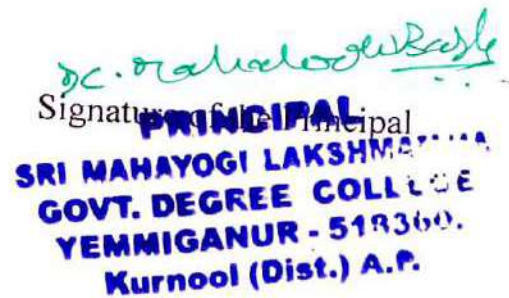 Signature of the Principal
PRINCIPAL
SRI MAHAYOGI
GOVT. DEGREE COLLEGE
YEMMIGANUR - 518360.
Kurnool (Dist.) A.P.